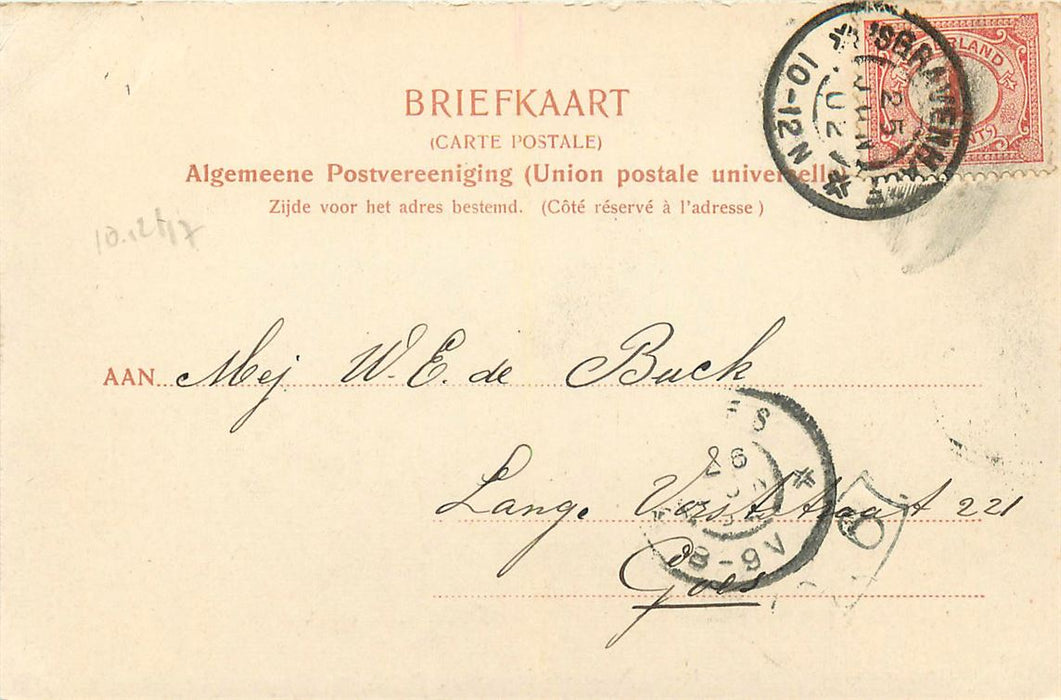 BRIEFKAART
(CARTE POSTALE)
Algemeene Postvereeniging (Union postale universelle)
Zijde voor het adres bestemd. (Côté réservé à l'adresse)
NEDERLAND
'SGRAVENHAGE
25
JUN
02
10-12 N
10.12
AAN Mej W. E. de Buck
Lange Vorststraat 221
Goes
26
8-9V
6